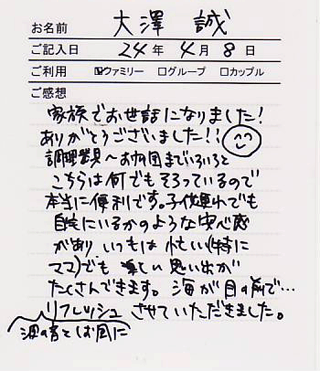 お名前 大澤 誠
ご記入日 24年 4月 8日
ご利用 ☑ファミリー □グループ □カップル
ご感想
家族でお世話になりました!
ありがとうございました!!
調理器具〜お布団までいろいろと
こちらは何でもそろっているので
本当に便利です。子供連れでも
自宅にいるかのような安心感
があり いつもは 忙しい(特に
ママ)でも 楽しい 思い出が
たくさんできます。海が目の前で…
リフレッシュ させていただきました。
波の音とお風に